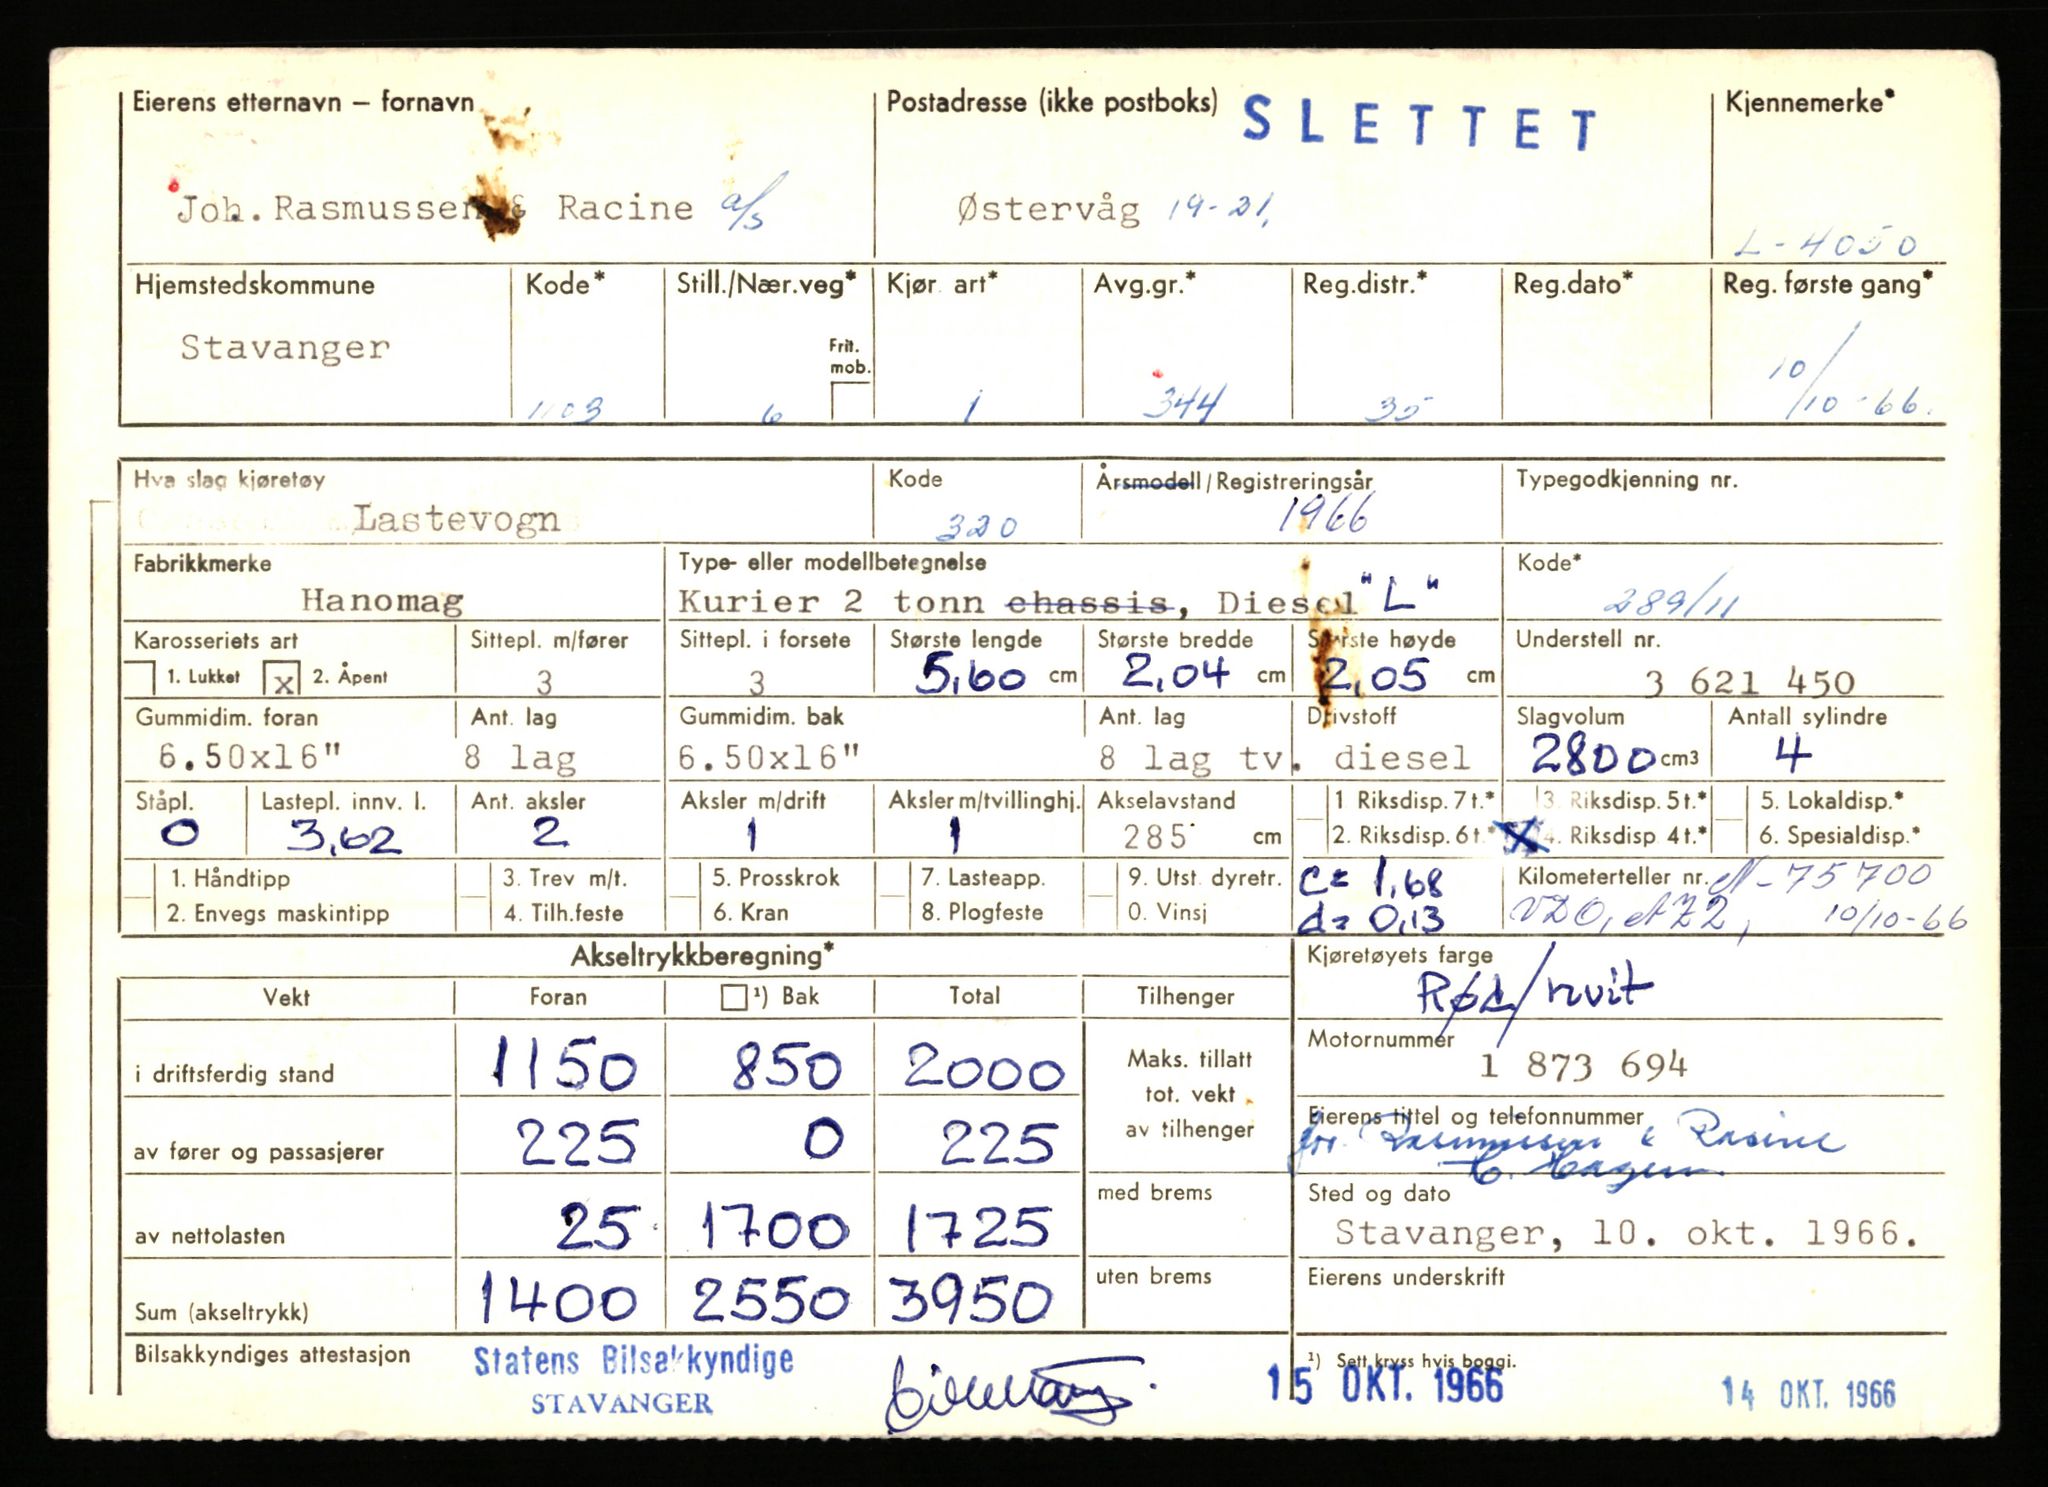 Eierens etternavn – fornavn Postadresse (ikke postboks) SLETTET Kjennemerke*
Joh. Rasmussen & Racine a/s Østervåg 19-21. L-4050
Hjemstedskommune Kode* Still./Nær.veg* Kjør. art* Avg.gr.* Reg.distr.* Reg.dato* Reg. første gang*
Stavanger 1103 6 Frit. mob. 1 344 35 10/10-66.
Hva slag kjøretøy Kode Årsmodell/Registreringsår Typegodkjenning nr.
Lastevogn 320 1966
Fabrikkmerke Type- eller modellbetegnelse Kode*
Hanomag Kurier 2 tonn chassis, Diesel "L" 289/11
Karosseriets art Sittepl. m/fører Sittepl. i forsete Største lengde Største bredde Største høyde Understell nr.
1. Lukket x 2. Åpent 3 3 5,60 cm 2,04 cm 2,05 cm 3 621 450
Gummidim. foran Ant. lag Gummidim. bak Ant. lag Drivstoff Slagvolum Antall sylindre
6.50x16" 8 lag 6.50x16" 8 lag tv. diesel 2800 cm3 4
Ståpl. Lastepl. innv. l. Ant. aksler Aksler m/drift Aksler m/tvillinghj. Akselavstand 1 Riksdisp. 7 t.* 3. Riksdisp. 5 t.* 5. Lokaldisp.*
0 3,62 2 1 1 285 cm 2. Riksdisp. 6 t.* X 4. Riksdisp 4 t.* 6. Spesialdisp.*
1. Håndtipp 3. Trev m/t. 5. Prosskrok 7. Lasteapp. 9. Utst. dyretr. c= 1,68 Kilometerteller nr. N-75700
2. Envegs maskintipp 4. Tilh.feste 6. Kran 8. Plogfeste 0. Vinsj d= 0,13 VDO, 10/10-66
Akseltrykkberegning* Kjøretøyets farge
Vekt Foran ¹) Bak Total Tilhenger Rød/hvit
i driftsferdig stand 1150 850 2000 Maks. tillatt tot. vekt av tilhenger Motornummer
1 873 694
av fører og passasjerer 225 0 225 Eierens tittel og telefonnummer
for Rasmussen & Racine
av nettolasten 25 1700 1725 med brems Sted og dato
Stavanger, 10. okt. 1966.
Sum (akseltrykk) 1400 2550 3950 uten brems Eierens underskrift
Bilsakkyndiges attestasjon Statens Bilsakkyndige ¹) Sett kryss hvis boggi.
STAVANGER 15 OKT. 1966 14 OKT. 1966